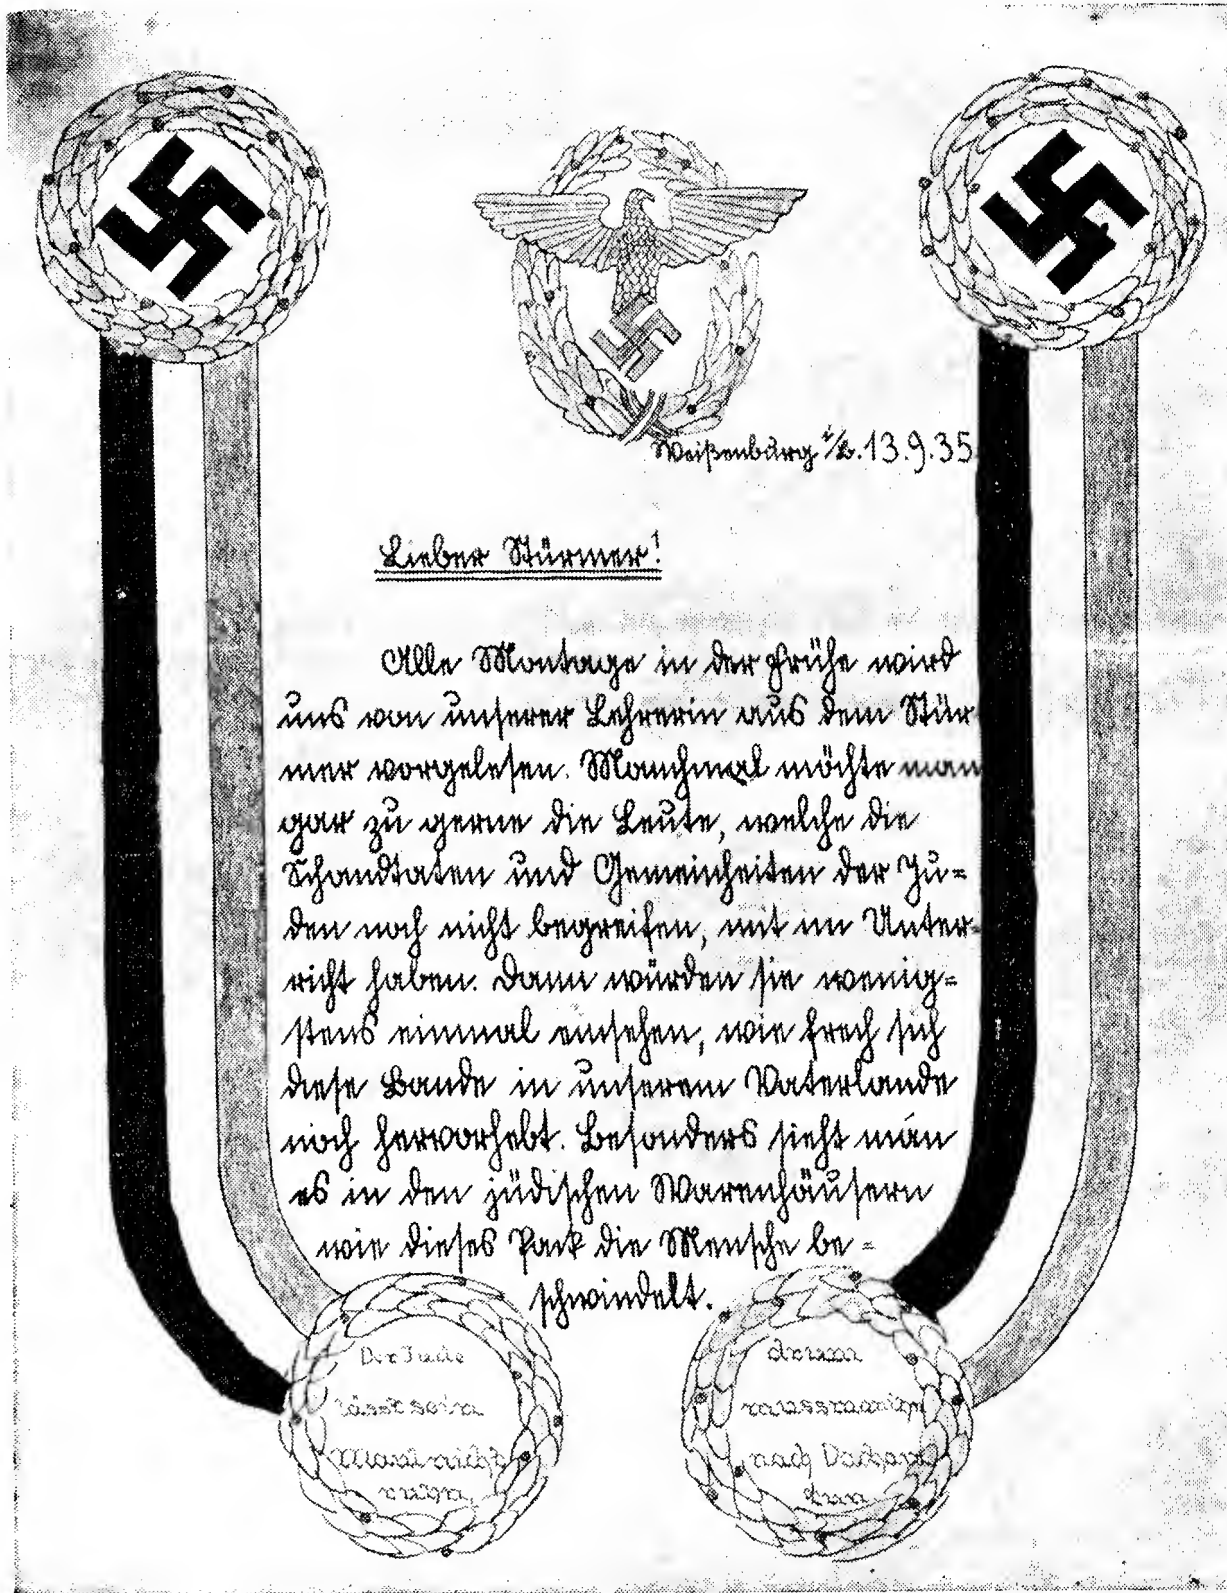 Weißenburg i/B. 13.9.35
Lieber Stürmer!
Alle Montage in der Frühe wird
uns von unserer Lehrerin aus dem Stür
mer vorgelesen. Manchmal möchte man
gar zu gerne die Leute, welche die
Schandtaten und Gemeinheiten der Ju=
den noch nicht begreifen, mit im Unter=
richt haben. Dann würden sie wenig=
stens einmal einsehen, wie frech sich
diese Bande in unserem Vaterlande
noch hervorhebt. Besonders sieht man
es in den jüdischen Warenhäusern
wie dieses Pack die Mensche be=
schwindelt.
Der Jude
lässt sein
Maul nicht
ruhn,
drum
muss man ihn
nach Dachau
tun